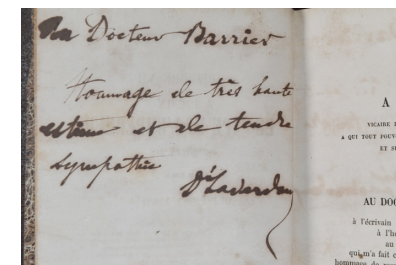 Au Docteur Barrier
Hommage de très haute
estime et de tendre
sympathie
A
VICAIRE
A QUI TOUT
ET
AU
à l'écrivain
à
au
qui m'a fait
hommage de